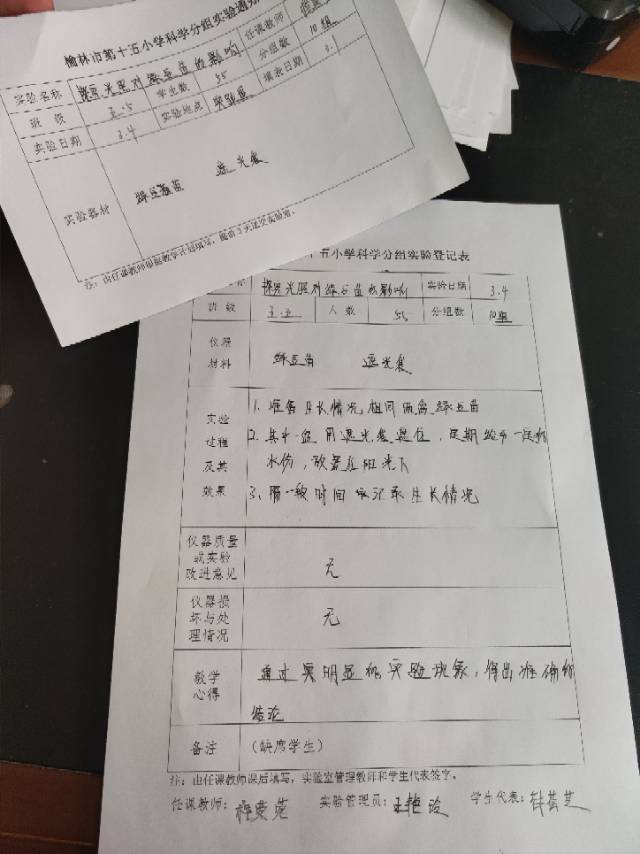 榆林市第十五小学科学分组实验通知
实验名称 探究光照对绿豆苗的影响 任课教师
班级 3.5 学生数 55 分组数 10组
实验日期 3.4 实验地点 实验室 填表日期 3.1
实验器材 绿豆苗 遮光盒
注:由任课教师根据教学计划填写,提前3天送交实验室。
十五小学科学分组实验登记表
探究光照对绿豆苗的影响 实验日期 3.4
班级 人数 55 分组数 10组
仪器材料 绿豆苗 遮光盒
实验过程及其效果
1、准备生长情况相同两盆绿豆苗
2、其中一盆用遮光盒遮住,定期给予一定的
水份,放置在阳光下
3、隔一段时间 记录生长情况
仪器质量或实验改进意见 无
仪器损坏与处理情况 无
教学心得 通过实明显的实验现象,得出准确的
结论
备注 (缺席学生)
注:由任课教师课后填写,实验室管理教师和学生代表签字。
任课教师: 实验管理员: 学生代表: